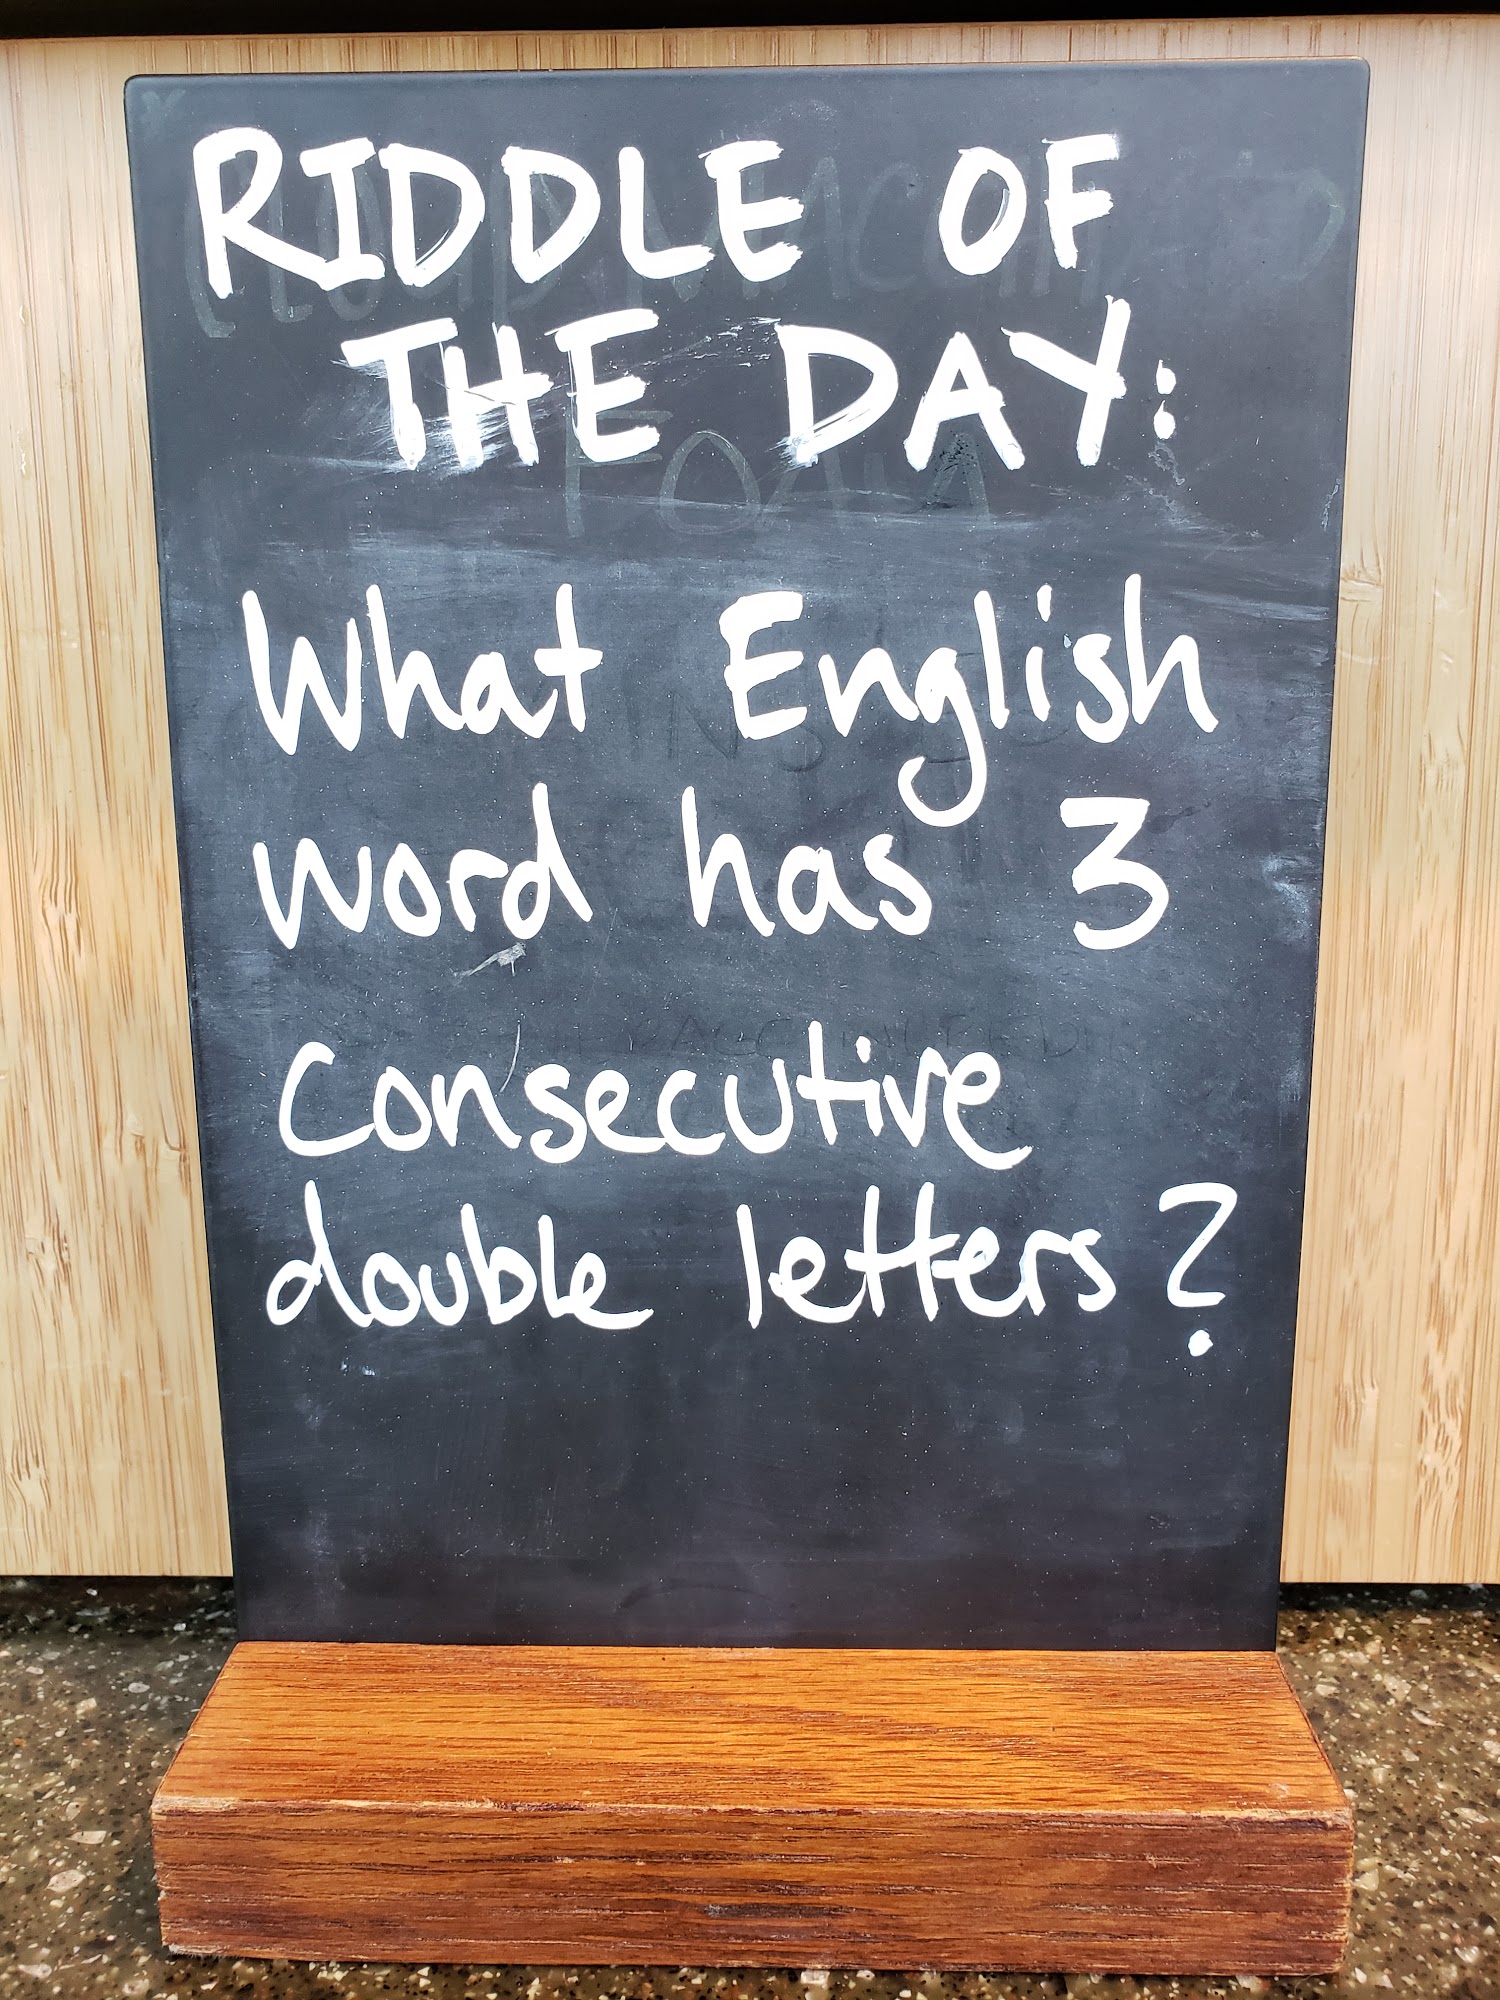 RIDDLE OF
THE DAY:
What English
word has 3
Consecutive
double letters?